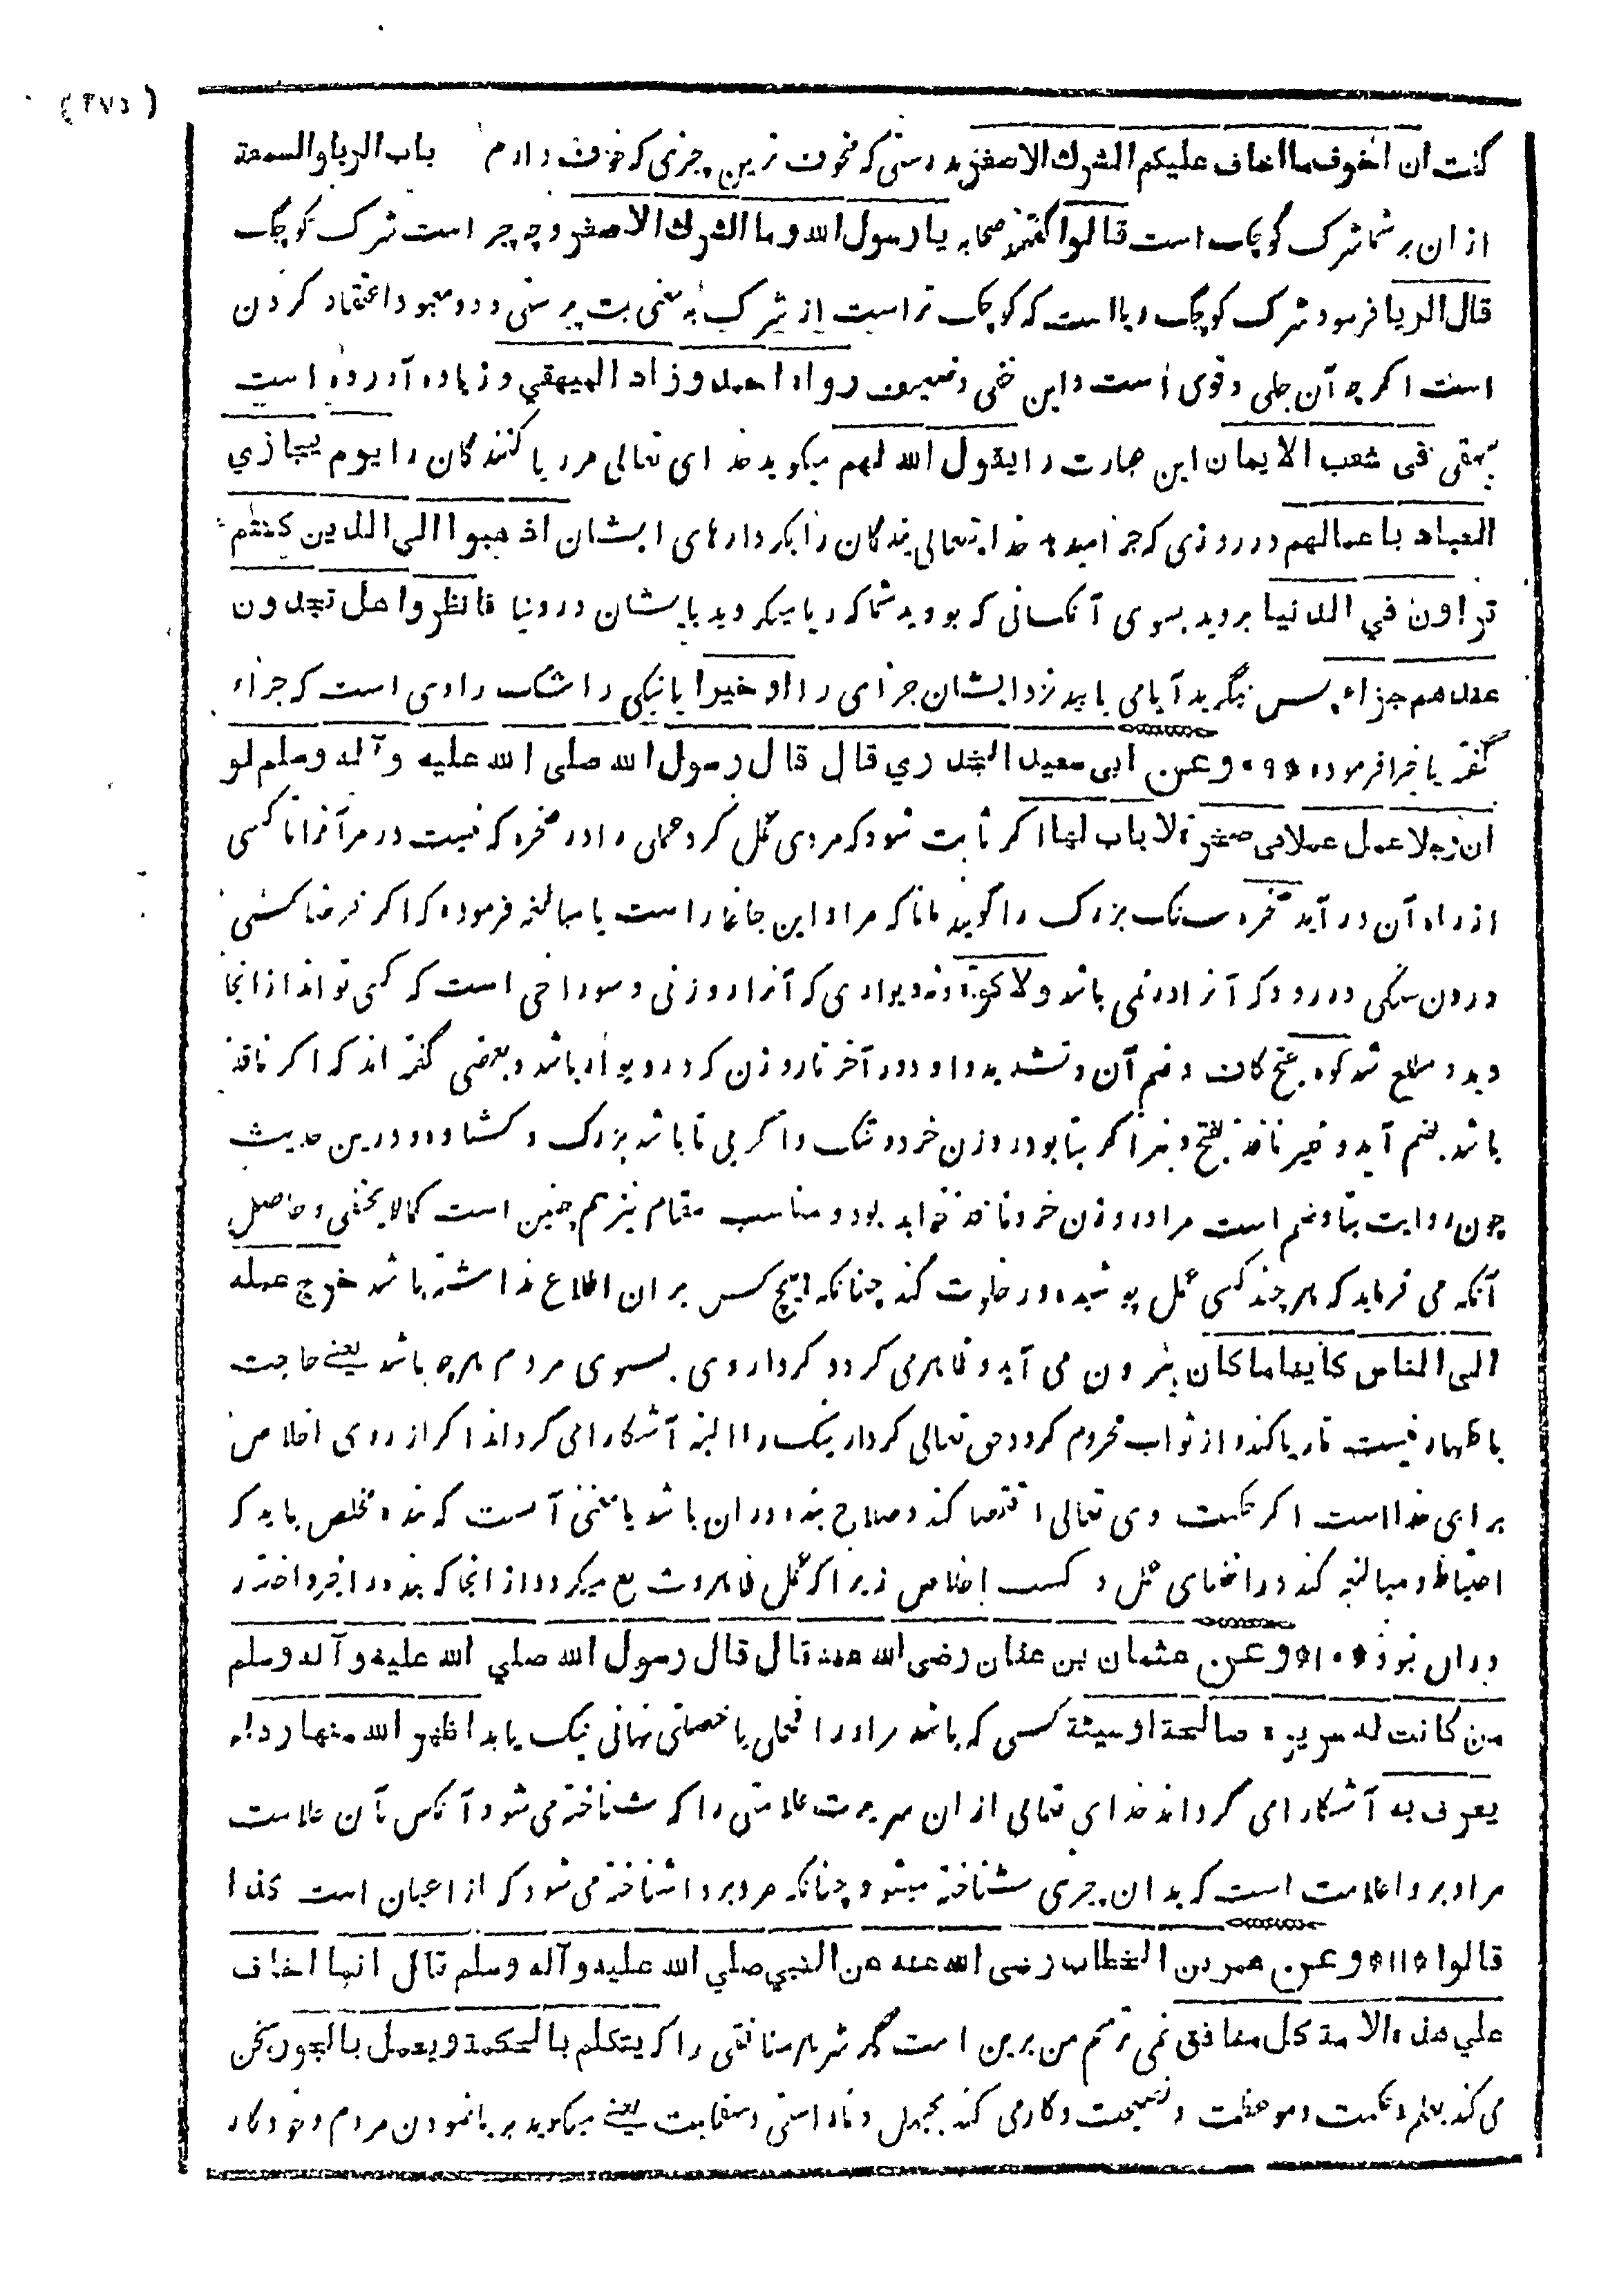 (۲۷۵)
گفت ان اخوف ما اخاف علیکم الشرك الاصغر بدرستی که مخوف ترین چیزی که خوف دارم باب الریا والسمعة
از ان بر شما شرک کوچک است قالوا گفتند صحابه یا رسول الله وما الشرك الاصغر و چه چیز است شرک کوچک
قال الریا فرمود شرک کوچک ریا است که کوچک تر است از شرک به معنی بت پرستی و دو معبود اعتقاد کردن
است اگرچه آن جلی و قوی است و این خفی و ضعیف رواه احمد وزاد البیهقي و زیاده آورده است
بیهقی في شعب الایمان این عبارت را یقول الله لهم میگوید خدای تعالی مر ریا کنندگان را یوم یجازي
العباد باعمالهم در روزی که جزا میدهد خدایتعالی بندگان را بکردارهای ایشان اذهبوا الی الذین کنتم
تراون في الدنیا بروید بسوی آنکسانی که بودید شما که ریا میکردید بایشان در دنیا فانظروا هل تجدون
عندهم جزاء پس بنگرید آیا می یابید نزد ایشان جزای را او خیرا یا نیکی را شک راوی است که جزاء
گفته یا خیرا فرموده ۹ * وعن ابی سعید الخدري قال قال رسول الله صلی الله علیه وآله وسلم لو
ان رجلا عمل عملا في صخرة لا باب لها اگر ثابت شود که مردی عمل کرد عملی را در صخره که نیست در مر آنرا تا کسی
از راه آن در آید صخره سنگ بزرگ را گویند مانا که مراد این جا غار است یا مبالغه فرموده که اگر فرضا کسی
درون سنگی در رود که آنرا در نمی باشد ولا کوة و نه دیواری که آنرا روزنی و سوراخی است که کسی تواند از انجا
دید و مطلع شد کوه بفتح کاف و ضم آن و تشدید واو و در آخر تا روزن که در دیوار باشد و بعضی گفته اند که اگر نافذ
باشد بضم آید و غیر نافذ بفتح و نیز اگر بتا بود روزن خرد و تنگ و اگر بی تا باشد بزرگ و کشاده و درین حدیث
چون روایت بتا و ضم است مراد روزن خرد نافذ خواهد بود و مناسب مقام نیز هم چنین است کما لا یخفی و حاصل
آنکه می فرماید که هر چند کسی عمل پوشیده در خلوت کند چنانکه هیچ کس بر ان اطلاع نداشته باشد خرج عمله
الی الناس کاینا ما کان بیرون می آید و ظاهر می گردد کردار وی بسوی مردم هرچه باشد یعنے حاجت
باظهار نیست تا ریا کند و از ثواب محروم گردد حق تعالی کردار نیک را البته آشکارا می گرداند اگر از روی اخلاص
برای خدا است اگر حکمت وی تعالی اقتضا کند و صلاح بنده در ان باشد یا معنی آنست که بنده مخلص باید که
احتیاط و مبالغه کند در اخفای عمل و کسب اخلاص زیرا که عمل ظاهر و شایع میگردد از انجا که بنده را خبر و اختیار
دران نبود * ۱۰ * وعن عثمان بن عفان رضی الله عنه قال قال رسول الله صلي الله علیه وآله وسلم
من کانت له سریرة صالحة او سیئة کسی که باشد مر او را فعلی یا خصلتی نهانی نیک یا بد اظهر الله منها رداء
یعرف به آشکارا می گرداند خدای تعالی از ان سریرت علامتی را که شناخته می شود آنکس بآن علامت
مراد بردا علامت است که بدان چیزی شناخته میشود چنانکه مرد بردا شناخته می شود که از اعیان است کذا
قالوا * ۱۱ * وعن عمر بن الخطاب رضی الله عنه عن النبي صلي الله علیه وآله وسلم قال انما اخاف
علي هذه الامة کل منافق نمی ترسم من برین امت مگر شر هر منافقی را که یتکلم بالحکمة ویعمل بالجور سخن
می کند بعلم و حکمت و موعظت و نصیحت و کار می کند بجهل و ناراستی و سفاهت یعنے میگوید بریا نمودن مردم و خود کار